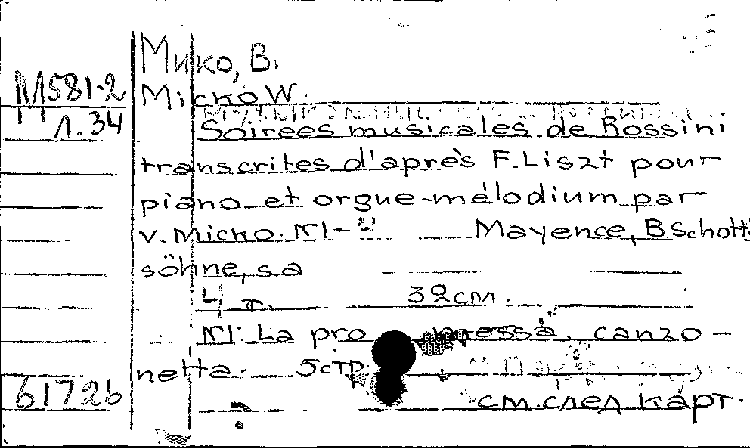 Мико, В.
М581-2
Micko W.
Л.34
Soirees musicales de Rossini
transcrites d'après F. Liszt pour
piano et orgue-mélodium par
V. Micko. N1-
Mayence, B Schott
söhne, s.a
4 т.
32см.
N1: La pro essa, canzo-
netta. 5стр.
61726
см. след карт.